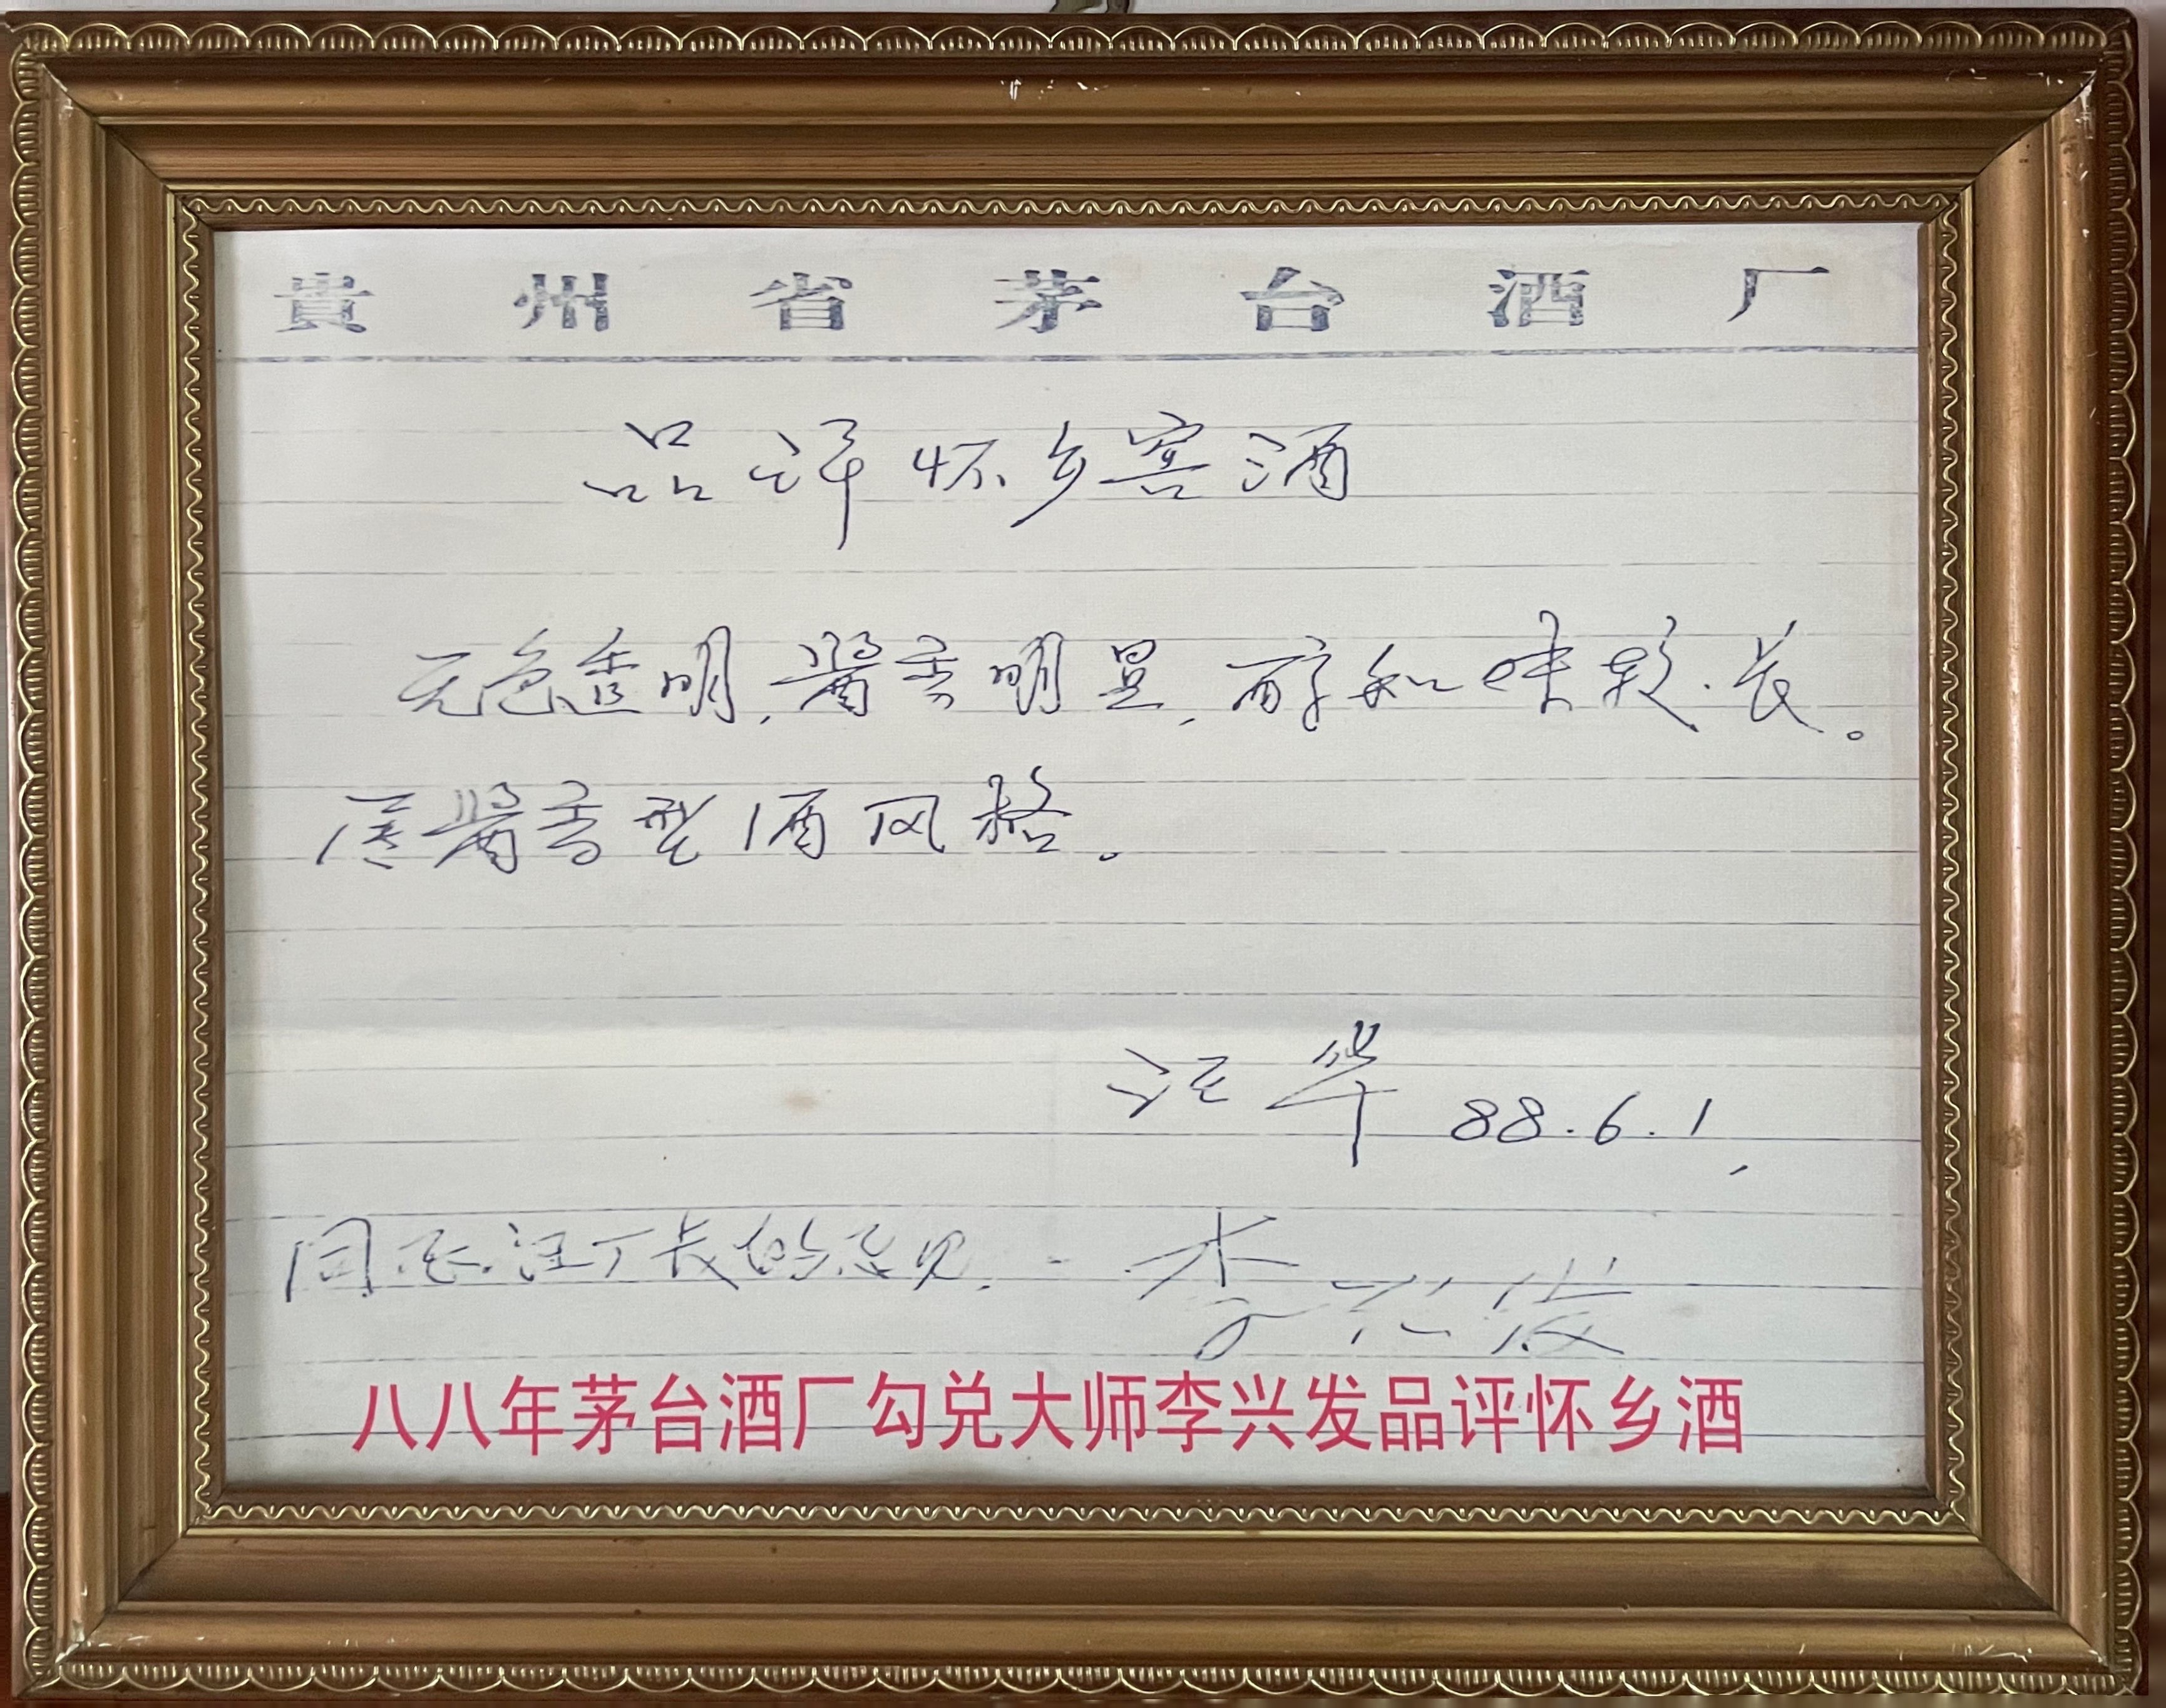 貴州省茅台酒厂
品评怀乡窖酒
无色透明,酱香明显,醇和味较长。
属酱香型酒风格。
汪华 88.6.1
同意汪厂长的意见. 李兴发
八八年茅台酒厂勾兑大师李兴发品评怀乡酒